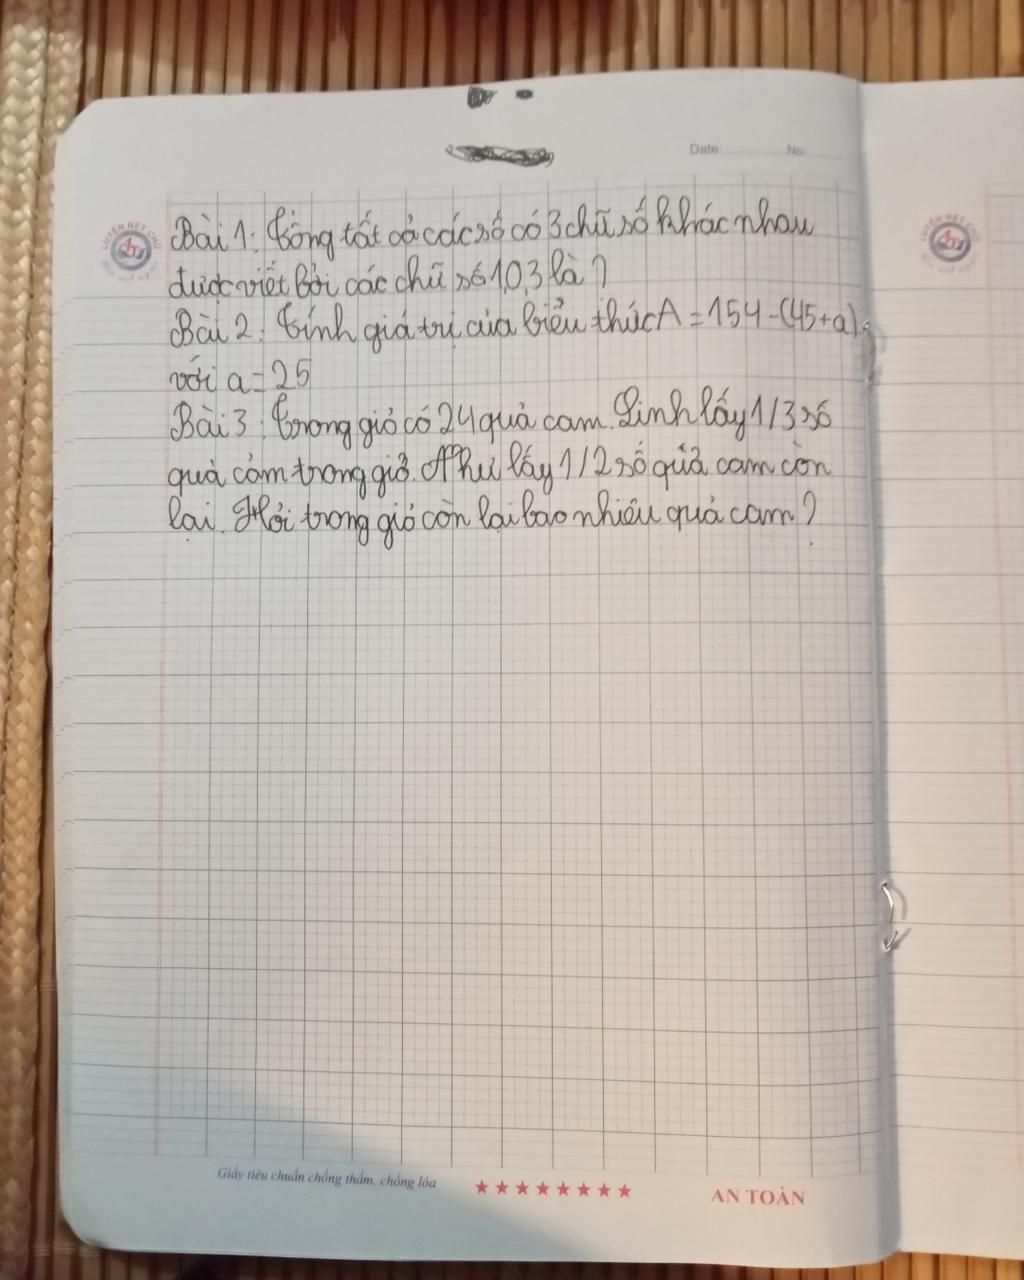 Date: No:
LUYỆN NÉT CHỮ
Bài 1: Tổng tất cả các số có 3 chữ số khác nhau
được viết bởi các chữ số 1,0,3 là ?
Bài 2: Tính giá trị của biểu thức A = 154 - (45 + a)
với a = 25
Bài 3: Trong giỏ có 24 quả cam. Linh lấy 1/3 số
quả cam trong giỏ. Như lấy 1/2 số quả cam còn
lại. Hỏi trong giỏ còn lại bao nhiêu quả cam ?
Giấy tiêu chuẩn chống thấm, chống lóa
AN TOÀN
LUYỆN NÉT CHỮ